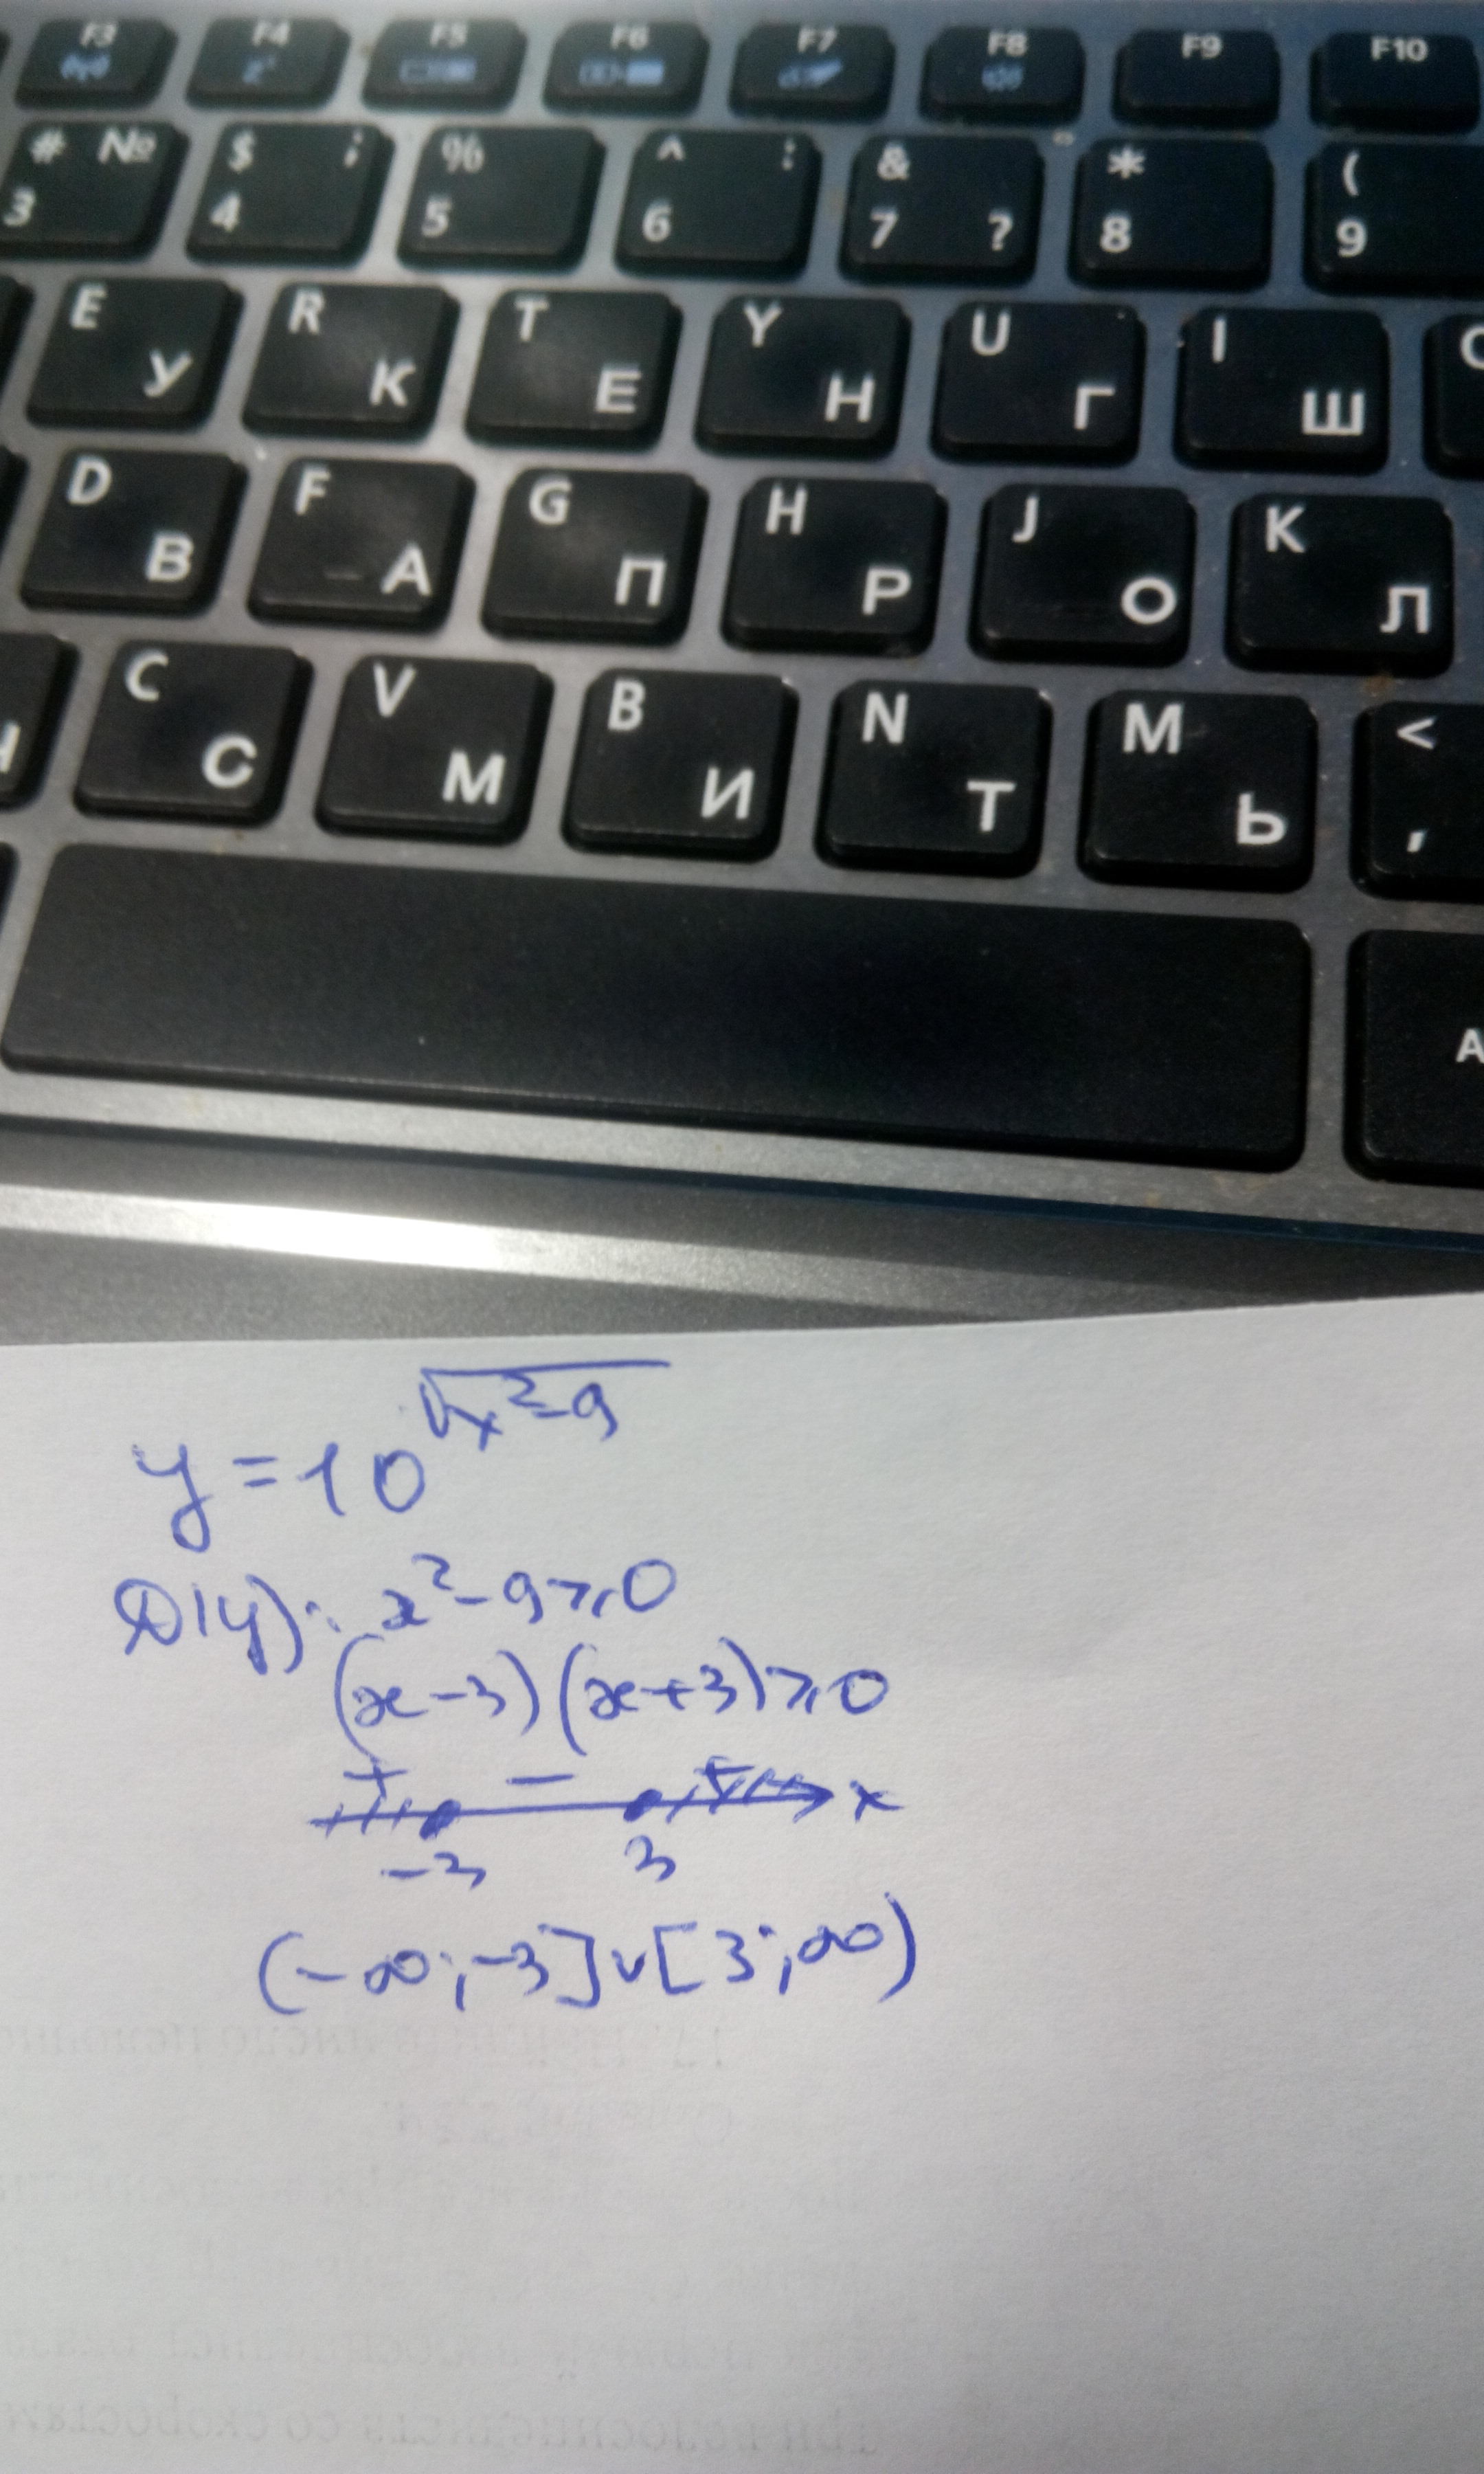 F3 F4 F5 F6 F7 F8 F9 F10
# № 3 $ ; 4 % 5 ^ : 6 & 7 ? * 8 ( 9
E У R К T Е Y Н U Г I Ш
D В F А G П H Р J О K Л
C С V М B И N Т M Ь < ,
A
y = 10^√(x²-9)
D(y): x²-9⩾0
(x-3)(x+3)⩾0
+ - + x
-3 3
(-∞;-3]∪[3;∞)